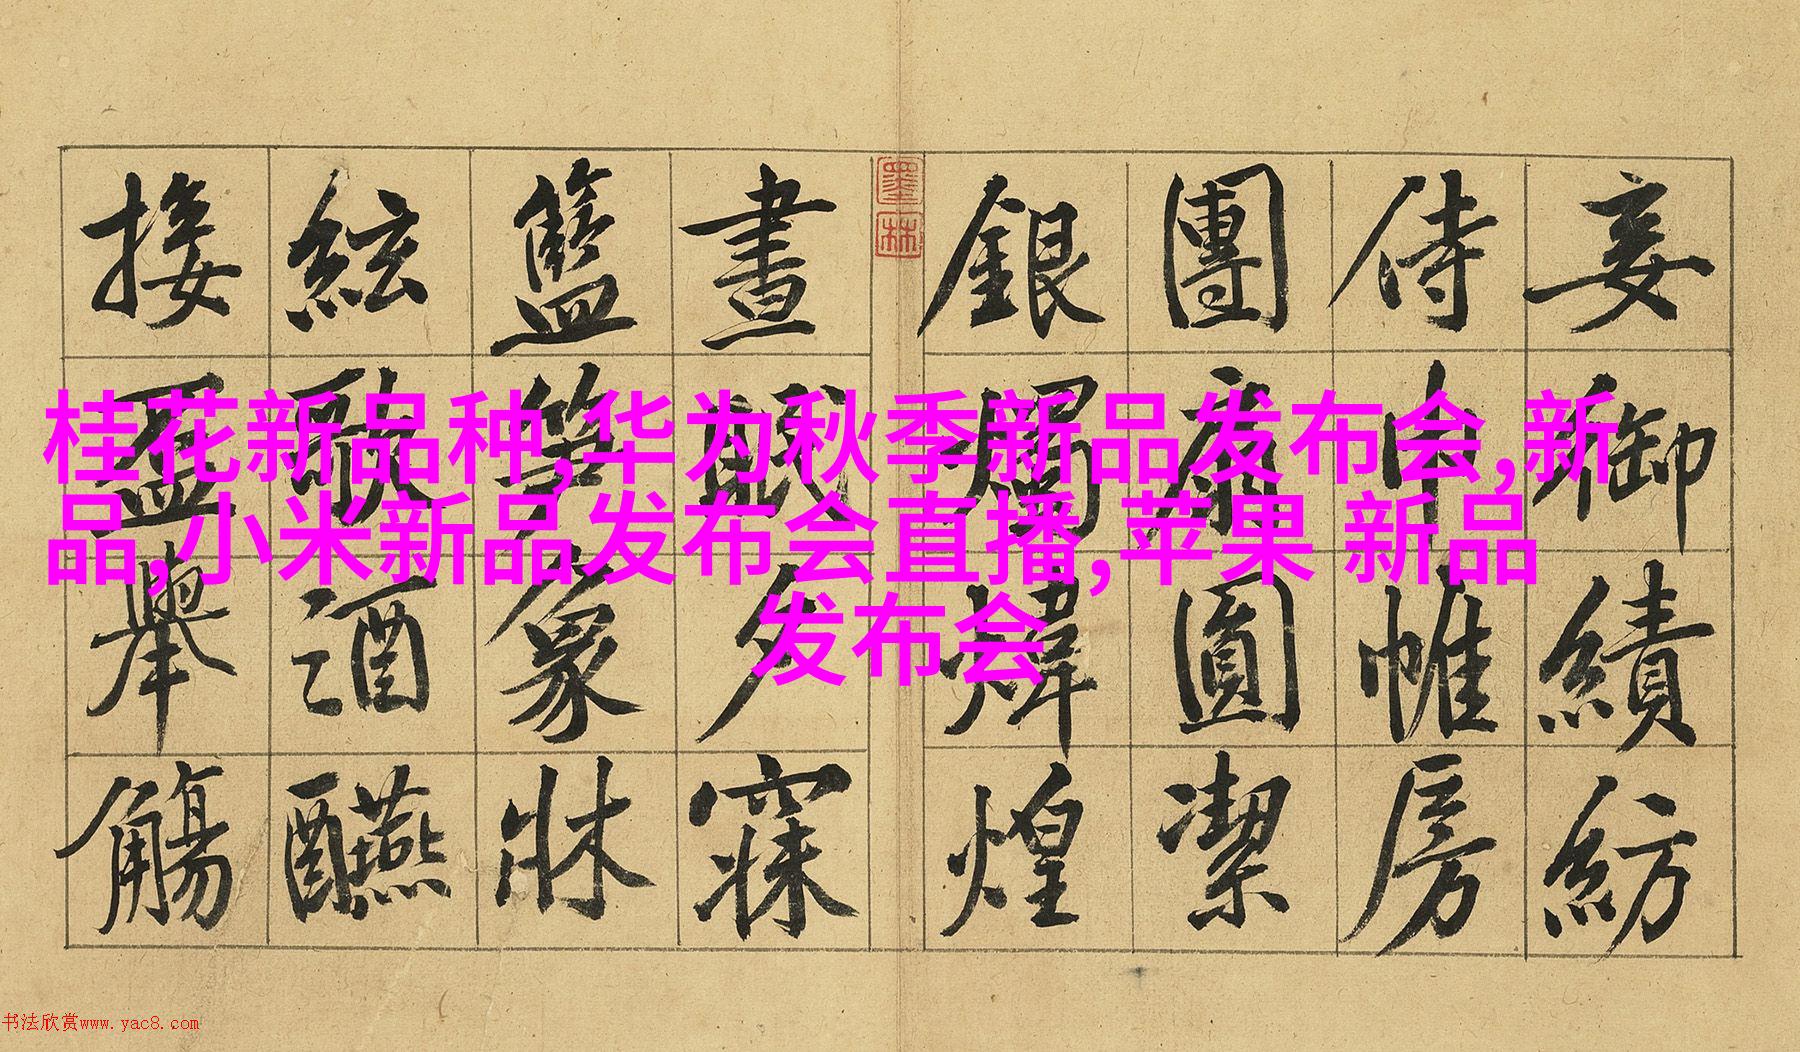 桂花新品种,华为秋季新品发布会,新
品,小米新品发布会直播,苹果 新品
发布会
妾御績紡
侍巾帷房
團扇圓潔
銀燭煒煌
墨林
晝眠夕寐
籃笋象牀
絃歌酒醼
接盃舉觴
书法欣赏www.yac8.com